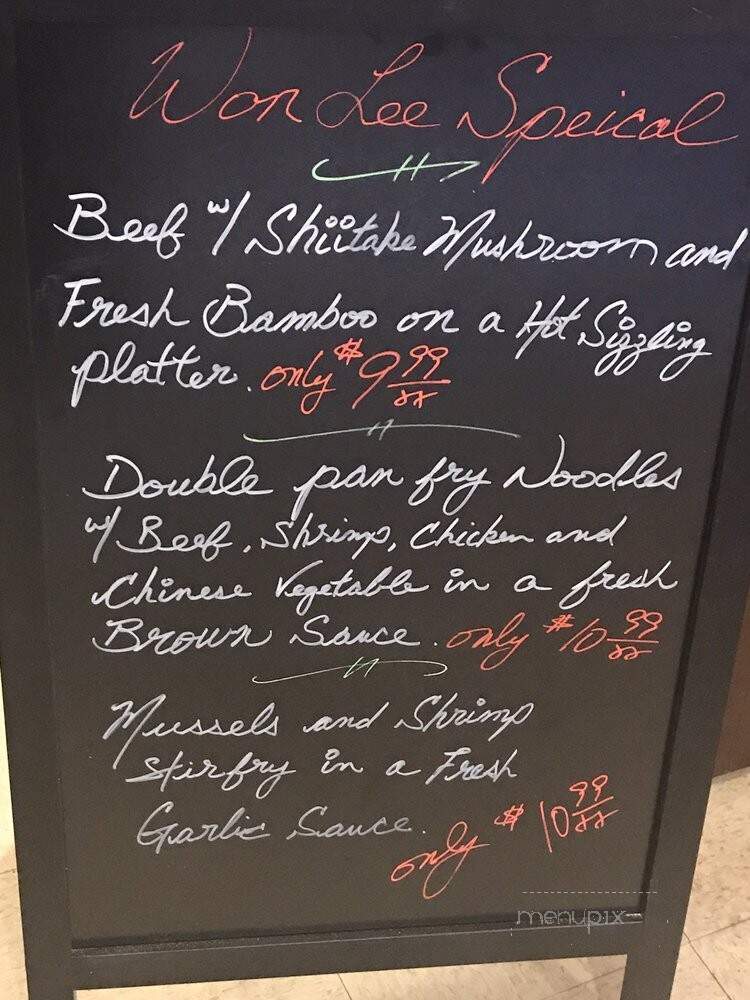 Won Lee Speical
Beef w/ Shiitake Mushroom and
Fresh Bamboo on a Hot Sizzling
platter. only $9.99
Double pan fry Noodles
w/ Beef, Shrimp, Chicken and
Chinese Vegetable in a fresh
Brown Sauce. only $10.99
Mussels and Shrimp
stirfry in a Fresh
Garlic Sauce.
only $10.99
menupix